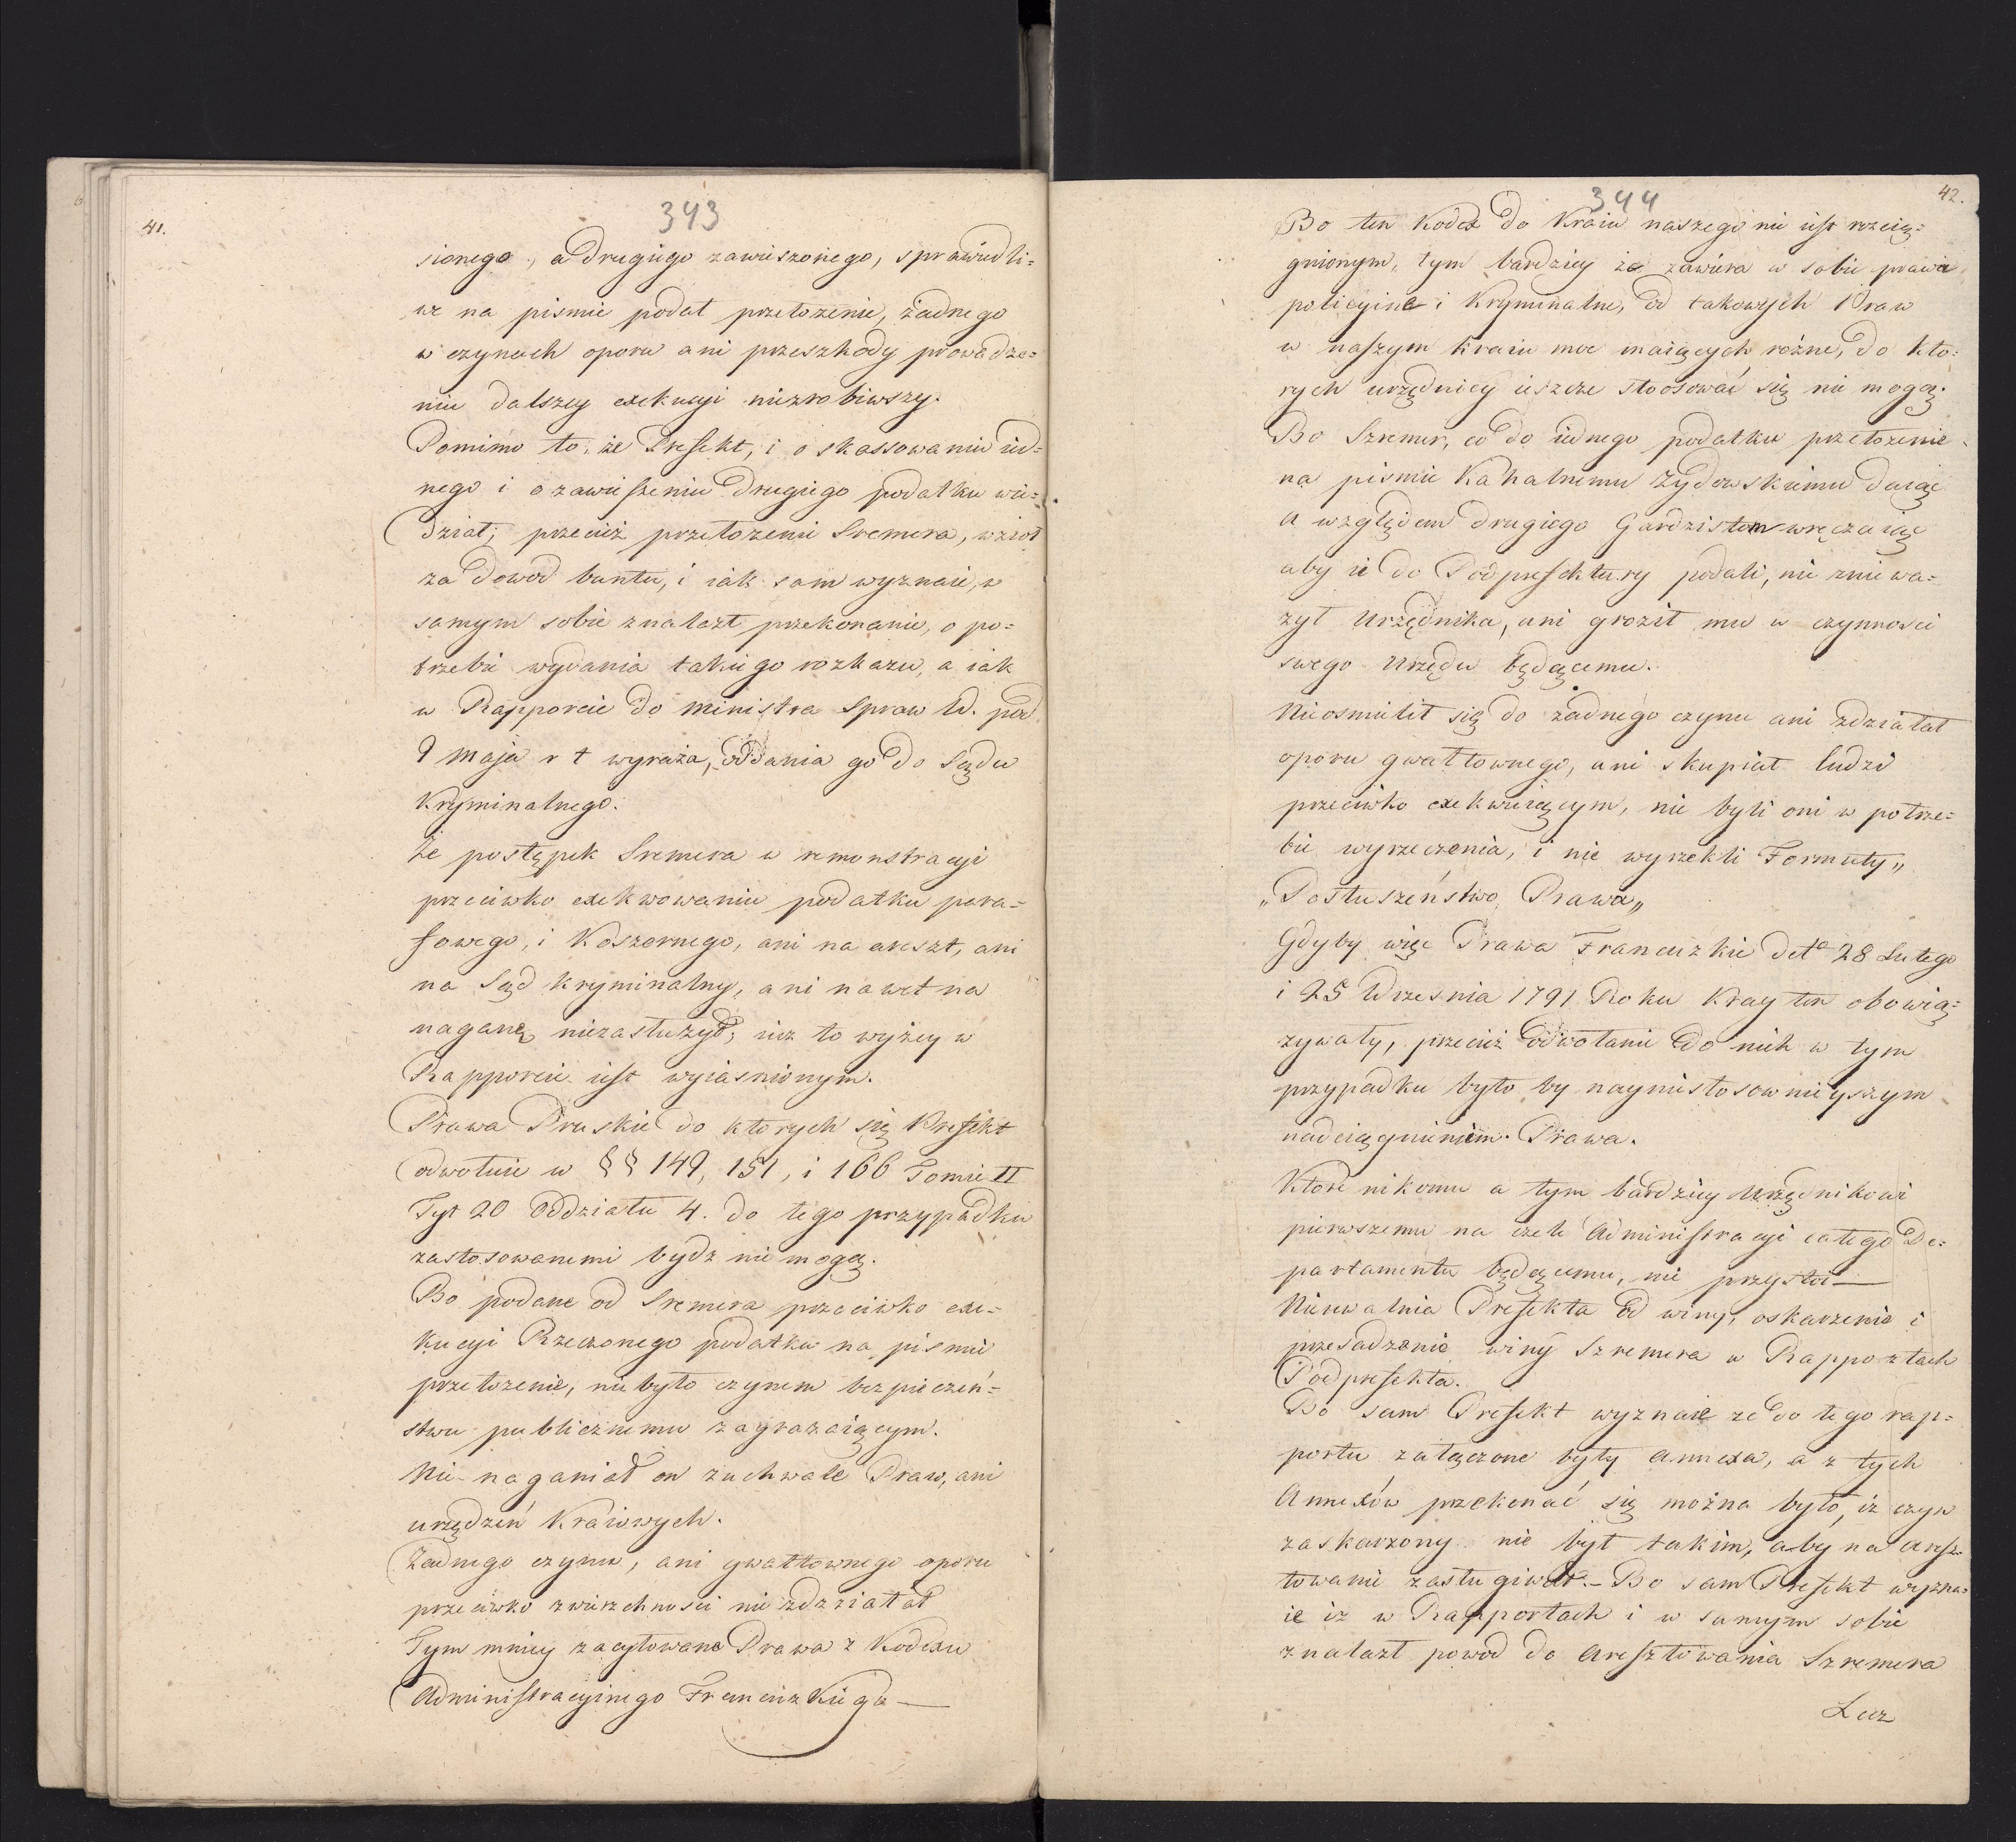 41.
343
sionego, a drugiego zawieszonego, sprawiedli=
we na pismie podał przełozenie, żadnego
w czynach oporu ani przeszkody prowadze=
niu dalszey exekucyi niezrobiwszy.
Pomimo to, że Prefekt, i o skassowaniu ied=
nego i o zawieszeniu drugiego podatku wie=
dział; przecież przełozenie Sremera, wzioł
za dowod buntu, i iak sam wyznaie, w
samym sobie znalazł przekonanie, o po=
trzebie wydania takiego rozkazu, a iak
w Rapporcie do Ministra Spraw W. pod
9 Maja r t wyraża, oddania go do Sądu
Kryminalnego.
Że postępek Sremera w remonstracyi
przeciwko exekwowaniu podatku para=
fowego, i Koszernego, ani na areszt, ani
na Sąd kryminalny, ani nawet na
naganę niezasłużył, iuz to wyżey w
Rapporcie iest wyiasnionym.
Prawa Pruskie do ktorych się Prefekt
odwołuie w §§ 149, 151, i 166 Tomie II
Tyt 20 Oddziału 4. do tego przypadku
zastosowanemi bydz nie mogą.
Bo podane od Sremera przeciwko exe=
kucyi Rzeczonego podatku na pismie
przełozenie, niebyło czynem bezpieczeń=
stwu publicznemu zagrazaiącym.
Nie naganiał on zuchwale Praw, ani
urządzeń Kraiowych.
Żadnego czynu, ani gwałtownego oporu
przeciwko zwierzchnosci nie zdziałał
Tym mniey zacytowane Prawa z Kodexu
Administracyinego Francuzkiego
42.
344
Bo ten Kodex do Kraiu naszego nie iest rozcią=
gnionym, tym bardziey że zawiera w sobie prawa
policyine i Kryminalne, od takowych Praw
w naszym kraiu moc maiących różne, do kto=
rych urzędnicy ieszcze stoosować się nie mogą.
Bo Szremer, co do iednego podatku przełozenie
na pismie Kahalnemu Żydowskiemu daiąc
a względem drugiego Gardzistom wręczaiąc
aby ie do Podprefektury podali, nie zniewa=
zył Urzędnika, ani groził mu w czynnosci
swego Urzędu będącemu.
Nieosmielił się do żadnego czynu ani zdziałał
oporu gwałtownego, ani skupiał ludzi
przeciwko exekwuiącym, nie byli oni w potrze=
bie wyrzeczenia, i nie wyrzekli Formuły„
„Posłuszeństwo Prawa„
Gdyby więc Prawa Francuzkie deto 28 Lutego
i 25 Wrzesnia 1791 Roku Kray ten obowią=
zywały, przecież odwołanie do nich w tym
przypadku było by naymiestosownieyszym
nadciągnieniem Prawa.
Które nikomu a tym bardziey Urzędnikowi
pierwszemu na czele Administracyi całego De=
partamentu będącemu, nie przystoi
Nieuwalnia Prefekta od winy, oskarzenie i
przesadzenie winy Szremera w Rapportach
Podprefekta.
Bo sam Prefekt wyznaie ze do tego rap=
portu załączone były Annexa, a z tych
Annexów przekonać się można było, iz czyn
zaskarzony nie był takim, aby na aresz=
towanie zasługiwał. – Bo sam Prefekt wyzna=
ie iz w Rapportach i w samym sobie
znalazł powod do Aresztowania Szremera
Lecz